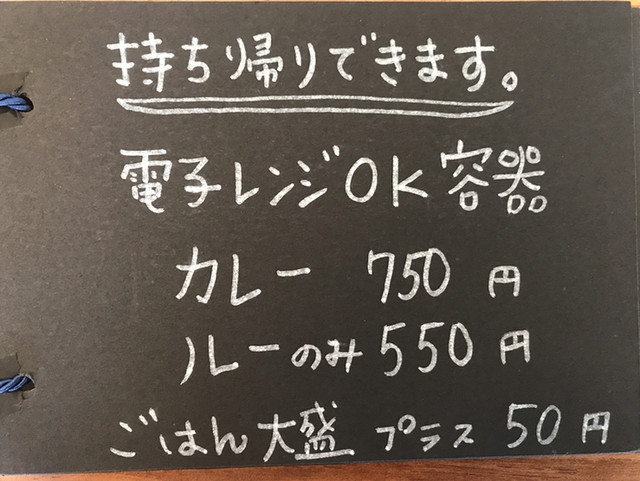 持ち帰りできます。
電子レンジOK容器
カレー 750円
ルーのみ550円
ごはん大盛 プラス 50円